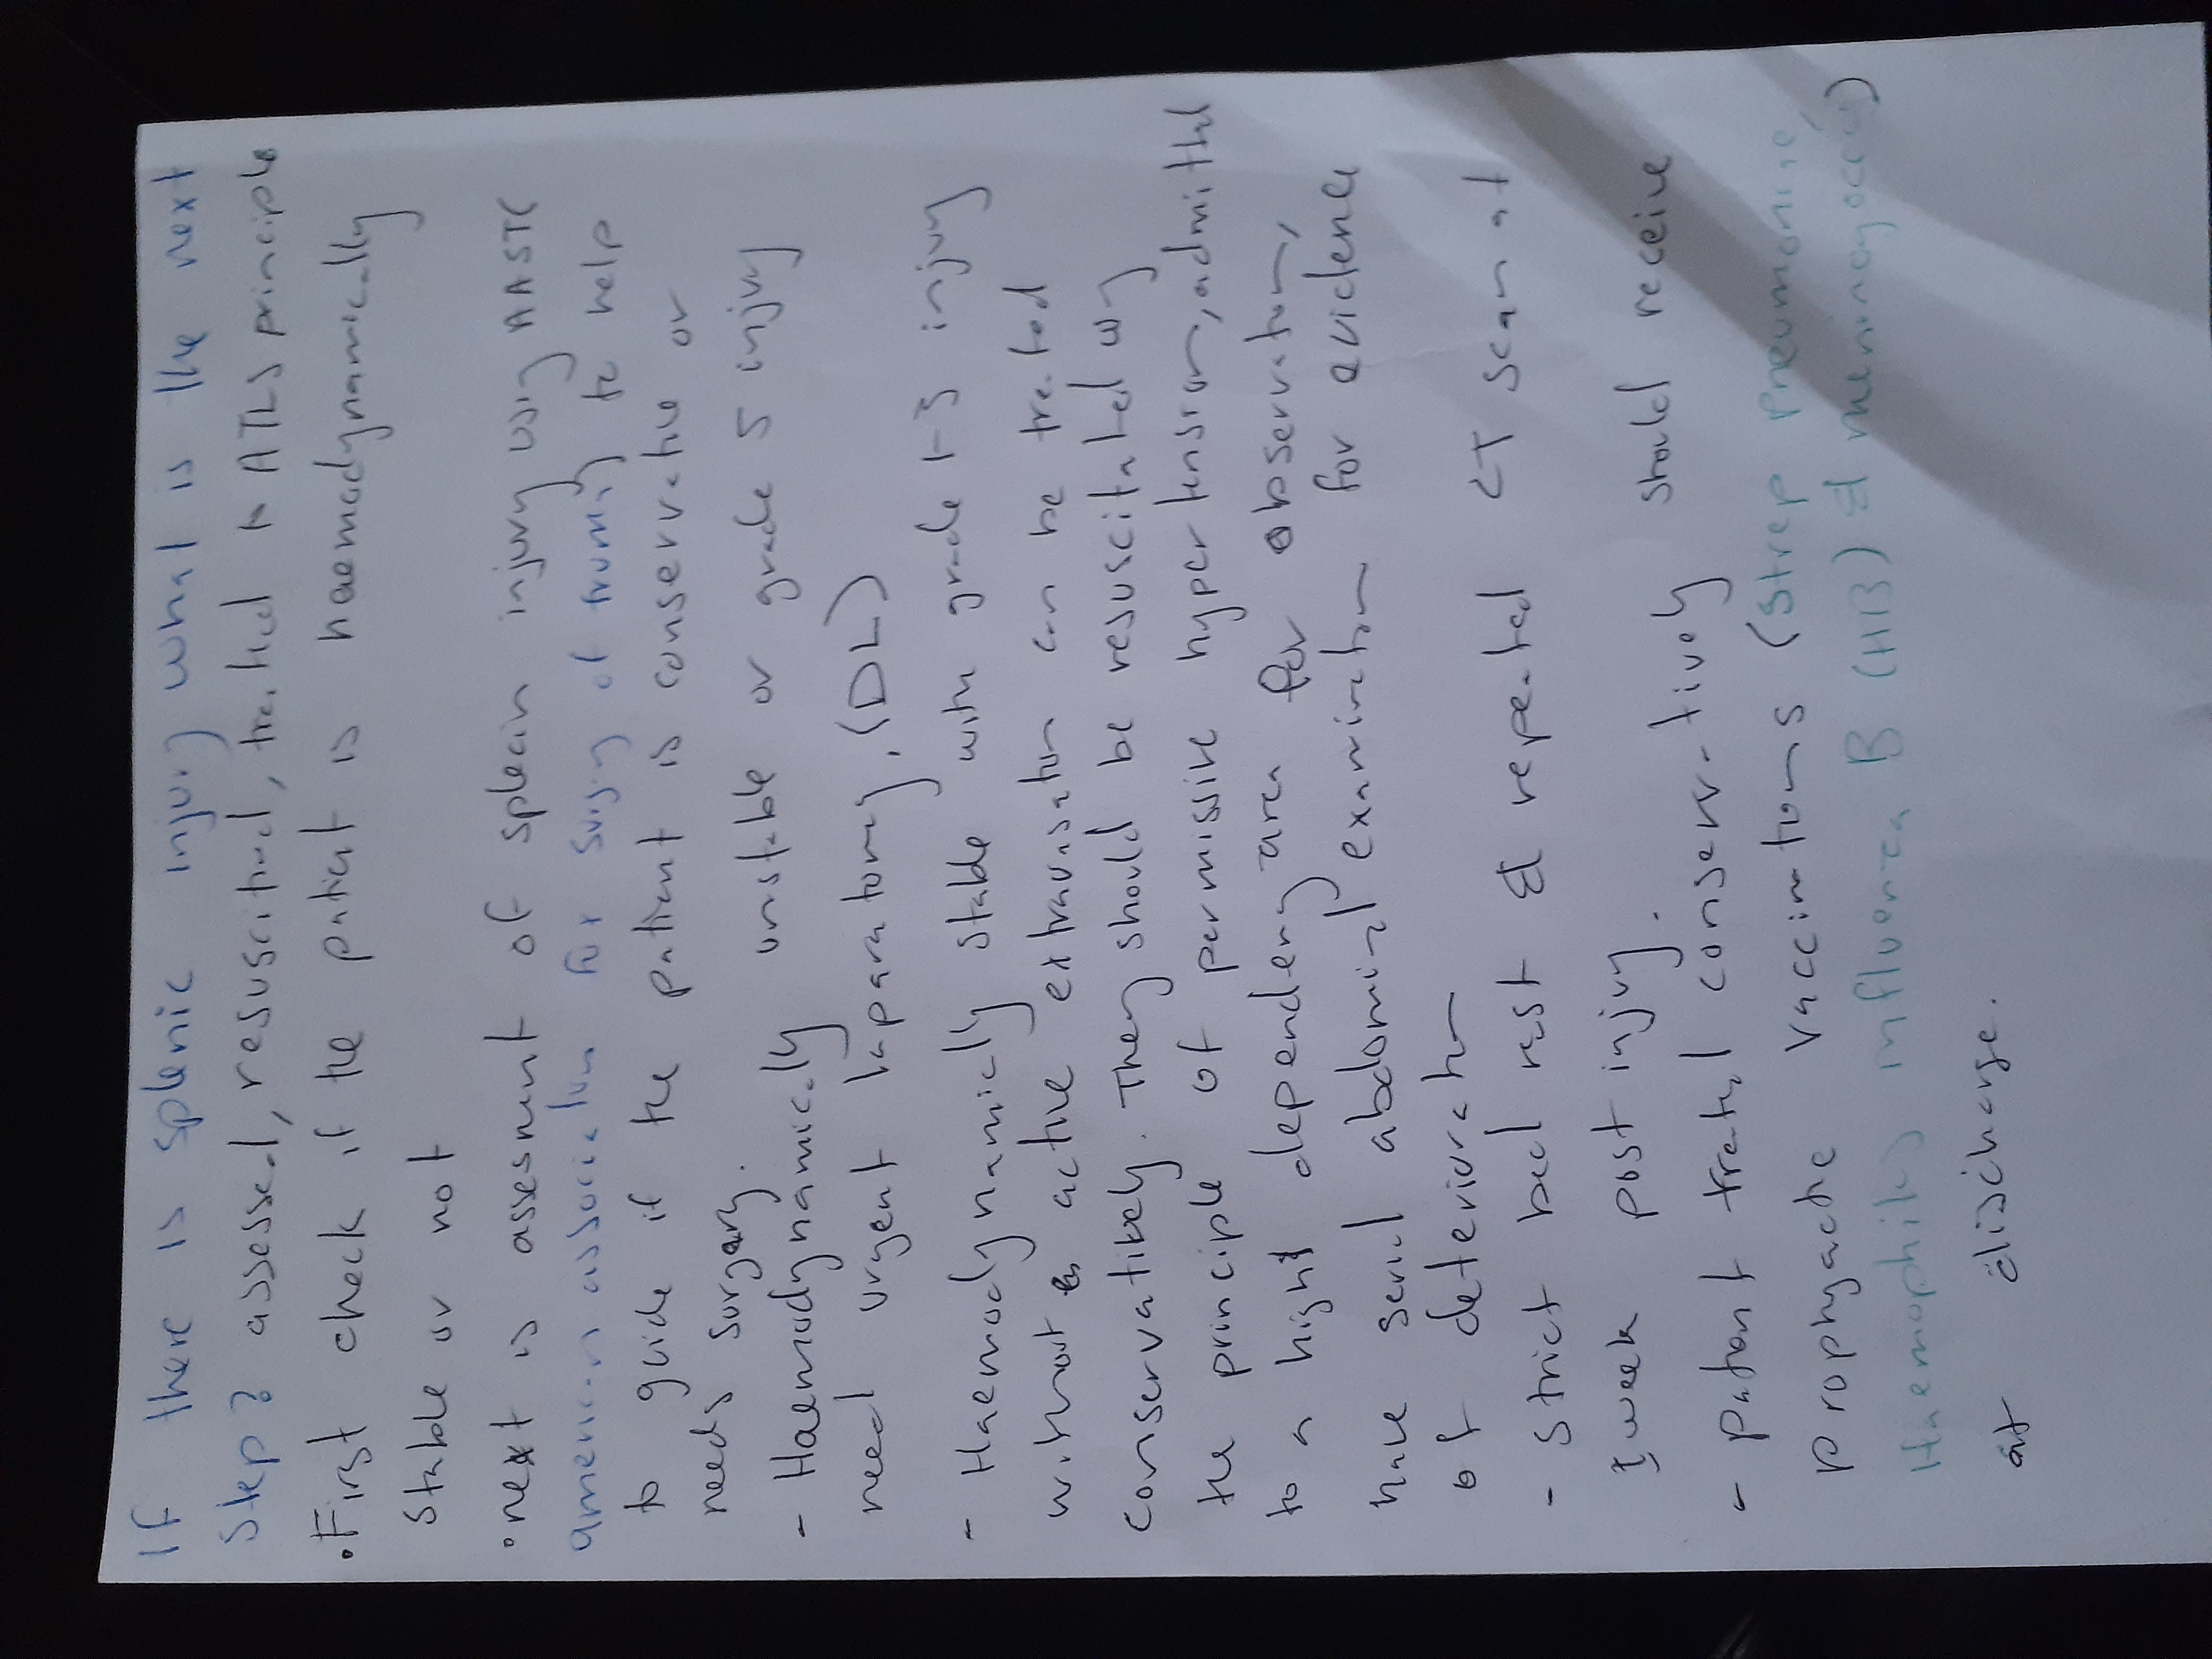 If there is splenic injury what is the next
step? assessed, resuscitated, treated to ATLS principles
• First check if the patient is haemodynamically
stable or not
• next is assesment of spleein injury using AAST (
american association for surgery of trauma) to help
to guide if the patient is conservative or
needs surgery.
- Haemodynamically unstable or grade 5 injury
need urgent laparatomy. (DL)
- Haemodynamically stable with grade 1-3 injury
without active extravasation can be treated
conservatively. They should be resuscitated by
the principle of permissive hypertension, admitted
to a high dependency area for observation,
have serial abdominal examination for evidence
of deterioration
- strict bed rest & repeated CT scan at
1 week post injury.
- patient treated conservatively should receive
prophyactic vaccinations (strep pneumonie,
Haemophilus influenza B (HIB) & meningococcus)
at discharge.